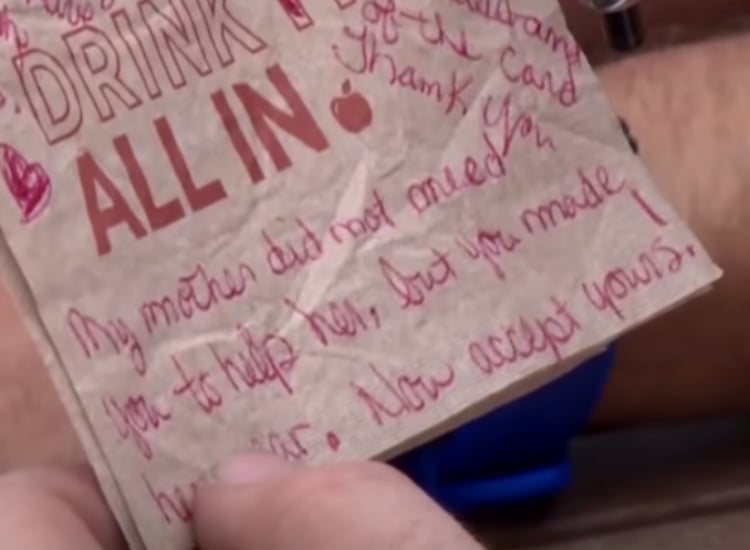 DRINK
ALL IN
of the card
Thank you
My mother did not need
you to help her, but you made
Now accept yours.